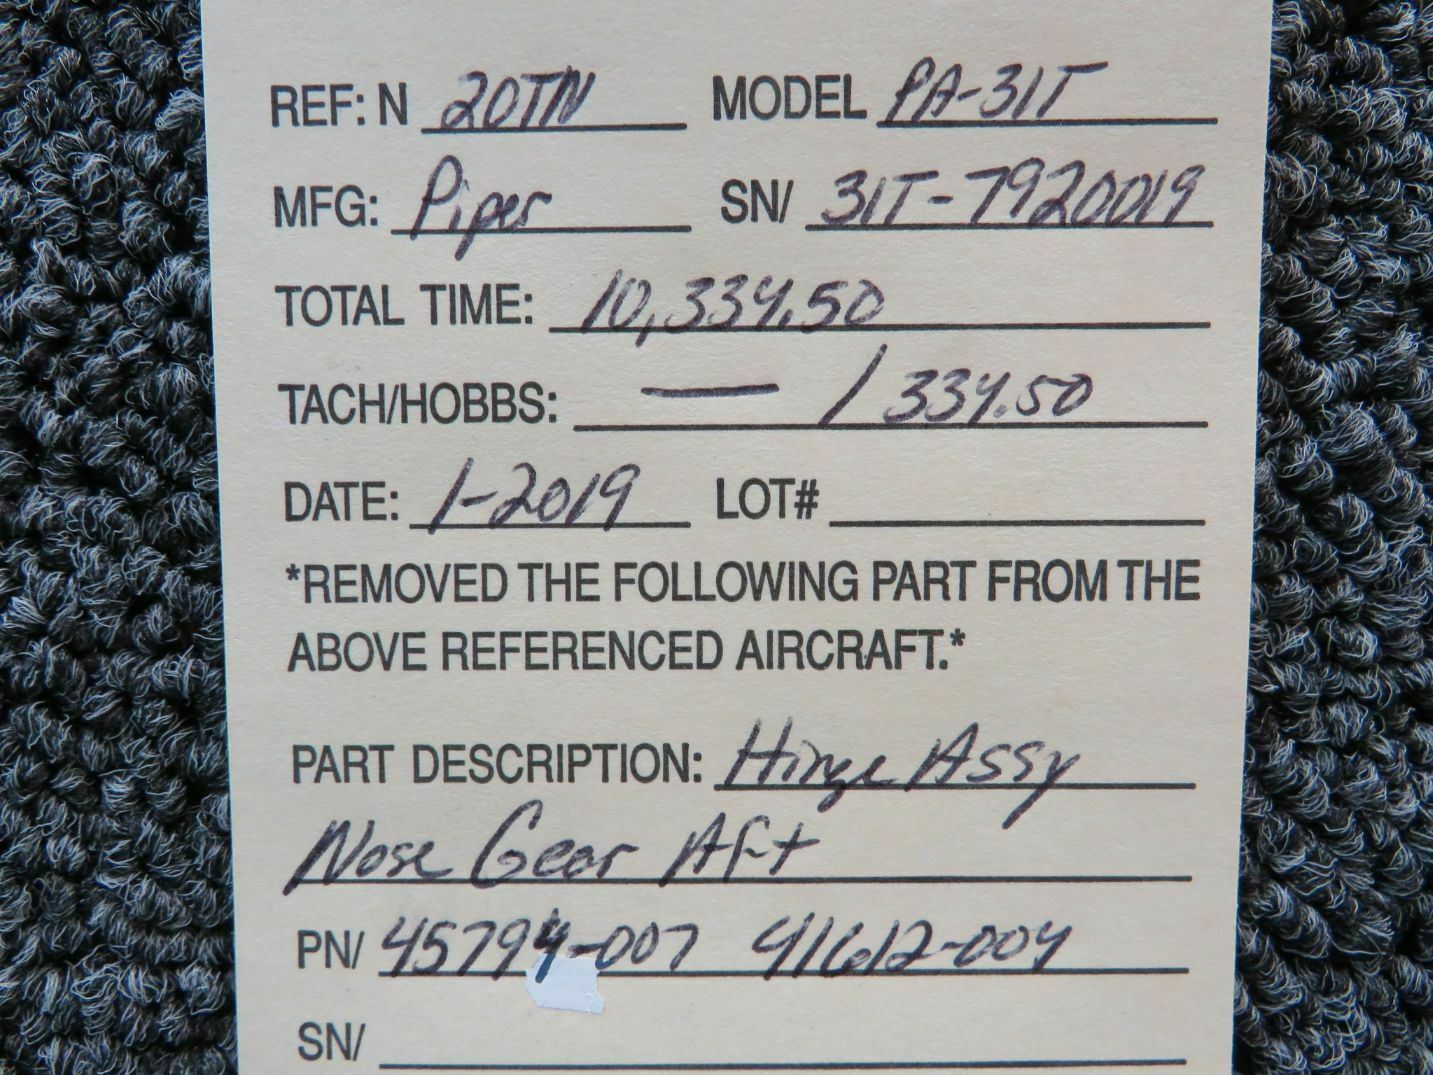 REF: N 20TN MODEL PA-31T
MFG: Piper SN/ 31T-7920019
TOTAL TIME: 10,334.50
TACH/HOBBS: — / 334.50
DATE: 1-2019 LOT#
*REMOVED THE FOLLOWING PART FROM THE
ABOVE REFERENCED AIRCRAFT.*
PART DESCRIPTION: Hinge Assy
Nose Gear Aft
PN/ 45794-007 41612-004
SN/